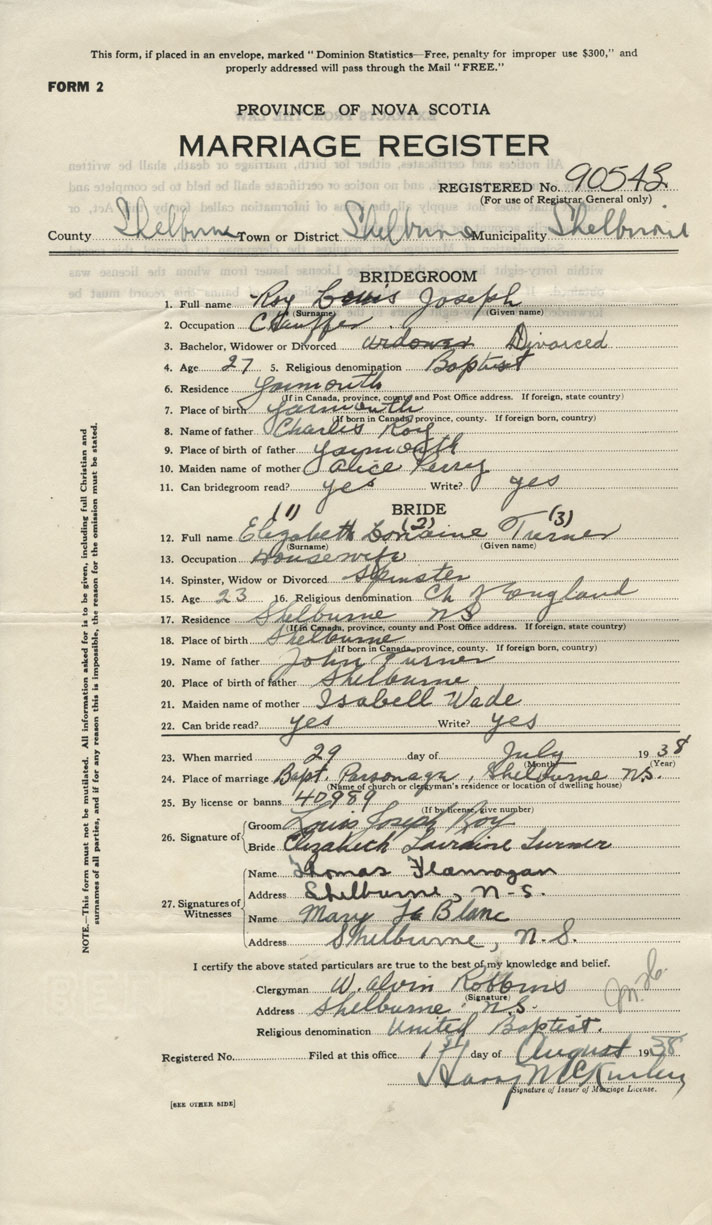 This form, if placed in an envelope, marked "Dominion Statistics—Free, penalty for improper use $300," and
properly addressed will pass through the Mail "FREE."
FORM 2
PROVINCE OF NOVA SCOTIA
MARRIAGE REGISTER
REGISTERED No. 90543
(For use of Registrar General only)
County Shelburne Town or District Shelburne Municipality Shelburne
BRIDEGROOM
1. Full name Roy Louis Joseph
(Surname) (Given name)
2. Occupation Chauffer
3. Bachelor, Widower or Divorced Widower Divorced
4. Age 27 5. Religious denomination Baptist
6. Residence Yarmouth
(If in Canada, province, county and Post Office address. If foreign, state country)
7. Place of birth Yarmouth
(If born in Canada, province, county. If foreign born, country)
8. Name of father Charles Roy
9. Place of birth of father Yarmouth
10. Maiden name of mother Alice Perry
11. Can bridegroom read? yes Write? yes
BRIDE
(1) (2) (3)
12. Full name Elizabeth Lorraine Turner
(Surname) (Given name)
13. Occupation Housewife
14. Spinster, Widow or Divorced Spinster
15. Age 23 16. Religious denomination Ch of England
17. Residence Shelburne NS
(If in Canada, province, county and Post Office address. If foreign, state country)
18. Place of birth Shelburne
(If born in Canada, province, county. If foreign born, country)
19. Name of father John Turner
20. Place of birth of father Shelburne
21. Maiden name of mother Isabell Wade
22. Can bride read? yes Write? yes
23. When married 29 day of July 1938
(Month) (Year)
24. Place of marriage Bapt. Parsonage, Shelburne N.S.
(Name of church or clergyman's residence or location of dwelling house)
25. By license or banns 40989
(If by license, give number)
26. Signature of Groom Louis Joseph Roy
Bride Elizabeth Lorraine Turner
27. Signatures of Witnesses
Name Thomas Flannagan
Address Shelburne, N-S.
Name Mary La Blanc
Address Shelburne, N.S.
I certify the above stated particulars are true to the best of my knowledge and belief.
Clergyman W. Alvin Robbins
(Signature)
Address Shelburne N.S.
Religious denomination United Baptist.
Registered No. Filed at this office day of August 1938
Harry McKinley
Signature of Issuer of Marriage License.
[SEE OTHER SIDE]
NOTE.—This form must not be mutilated. All information asked for is to be given, including full Christian and
surnames of all parties, and if for any reason this is impossible, the reason for the omission must be stated.